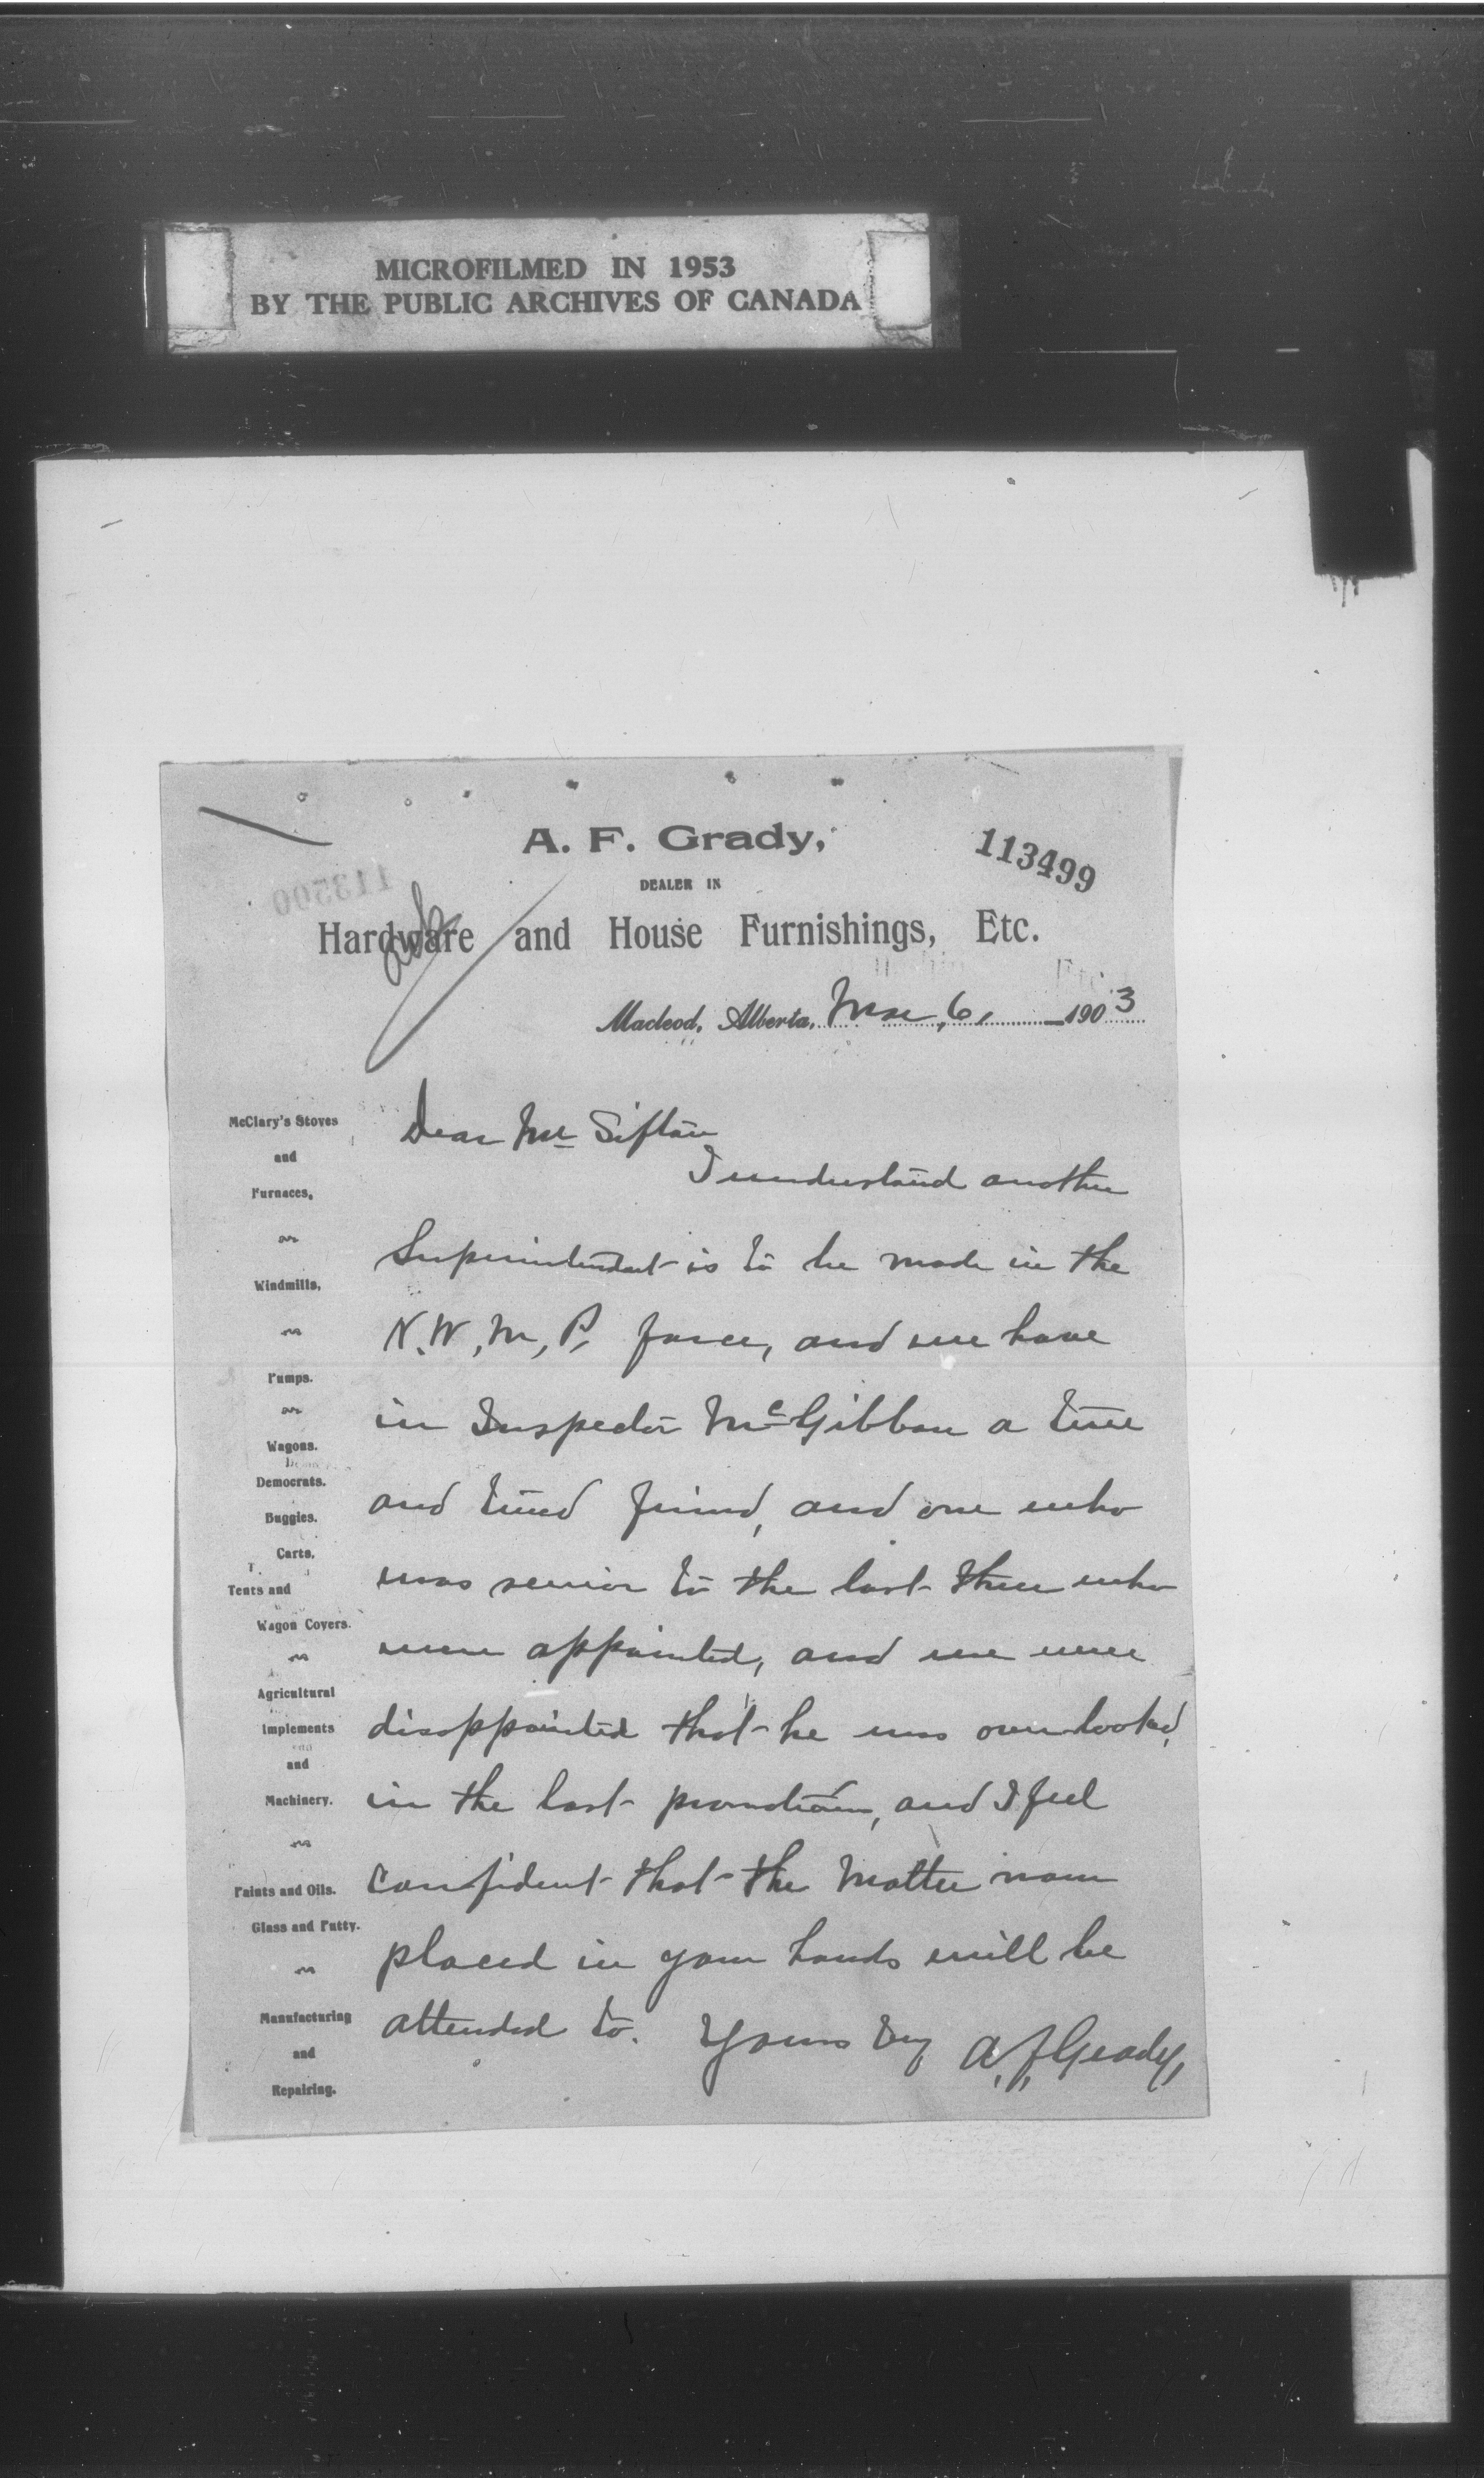 MICROFILMED IN 1953
BY THE PUBLIC ARCHIVES OF CANADA
A. F. Grady,
113499
DEALER IN
113500
Hardware and House Furnishings, Etc.
Macleod, Alberta, Mar, 6, 1903
McClary's Stoves
and
Furnaces,
Windmills,
Pumps.
Wagons.
Democrats.
Buggies.
Carts,
Tents and
Wagon Covers.
Agricultural
Implements
and
Machinery.
Paints and Oils.
Glass and Putty.
Manufacturing
and
Repairing.
Dear Mr Sifton
I understand another
Superintendent is to be made in the
N.W.M.P. force, and we have
in Inspector McGibbon a true
and tried friend, and one who
was senior to the last three who
were appointed, and we were
disappointed that he was overlooked,
in the last promotions, and I feel
confident that the matter now
placed in your hands will be
attended to. Yours try A.F. Grady,